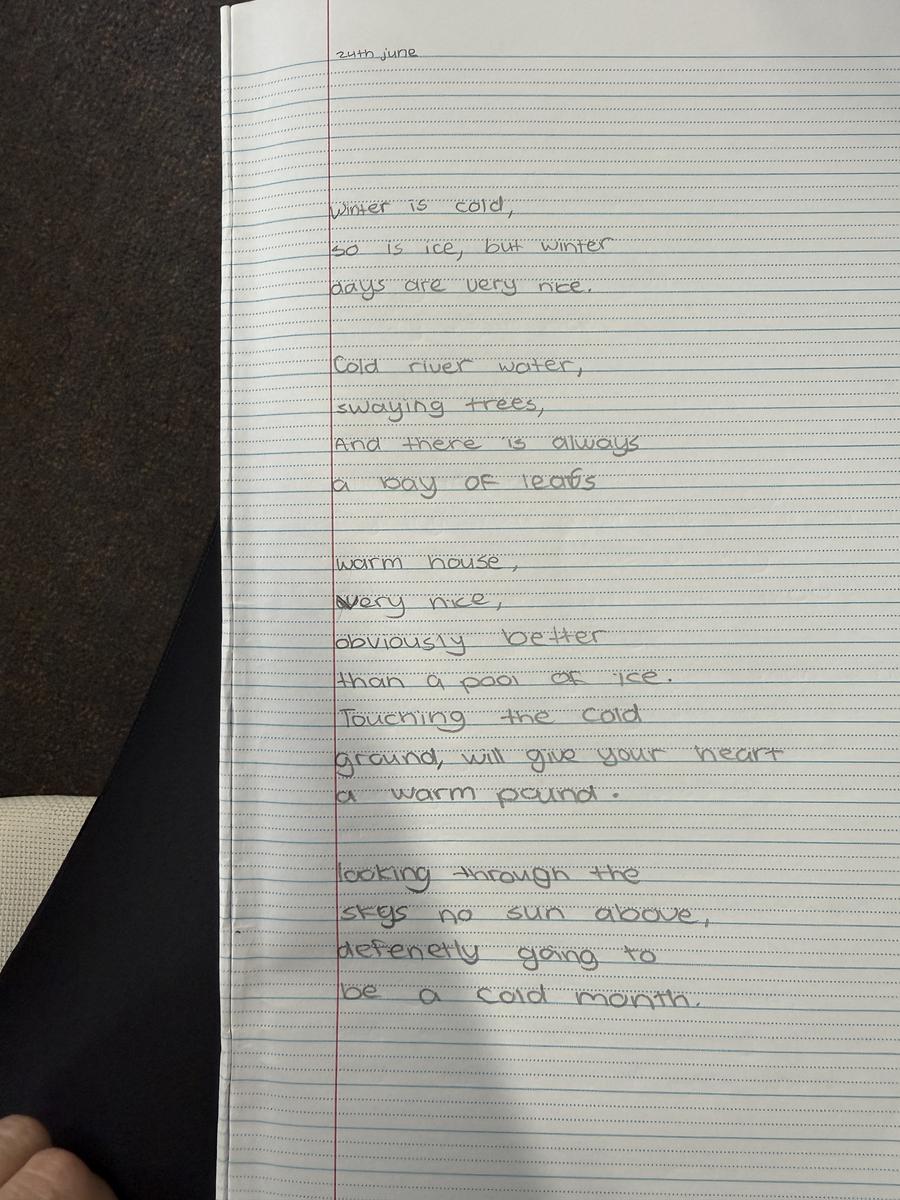 24th june
Winter is cold,
so is ice, but winter
days are very nice.
Cold river water,
swaying trees,
And there is always
a bay of leafs
warm house,
very nice,
obviously better
than a pool of ice.
Touching the cold
ground, will give your heart
a warm pound.
looking through the
skys no sun above,
defenetly going to
be a cold month.